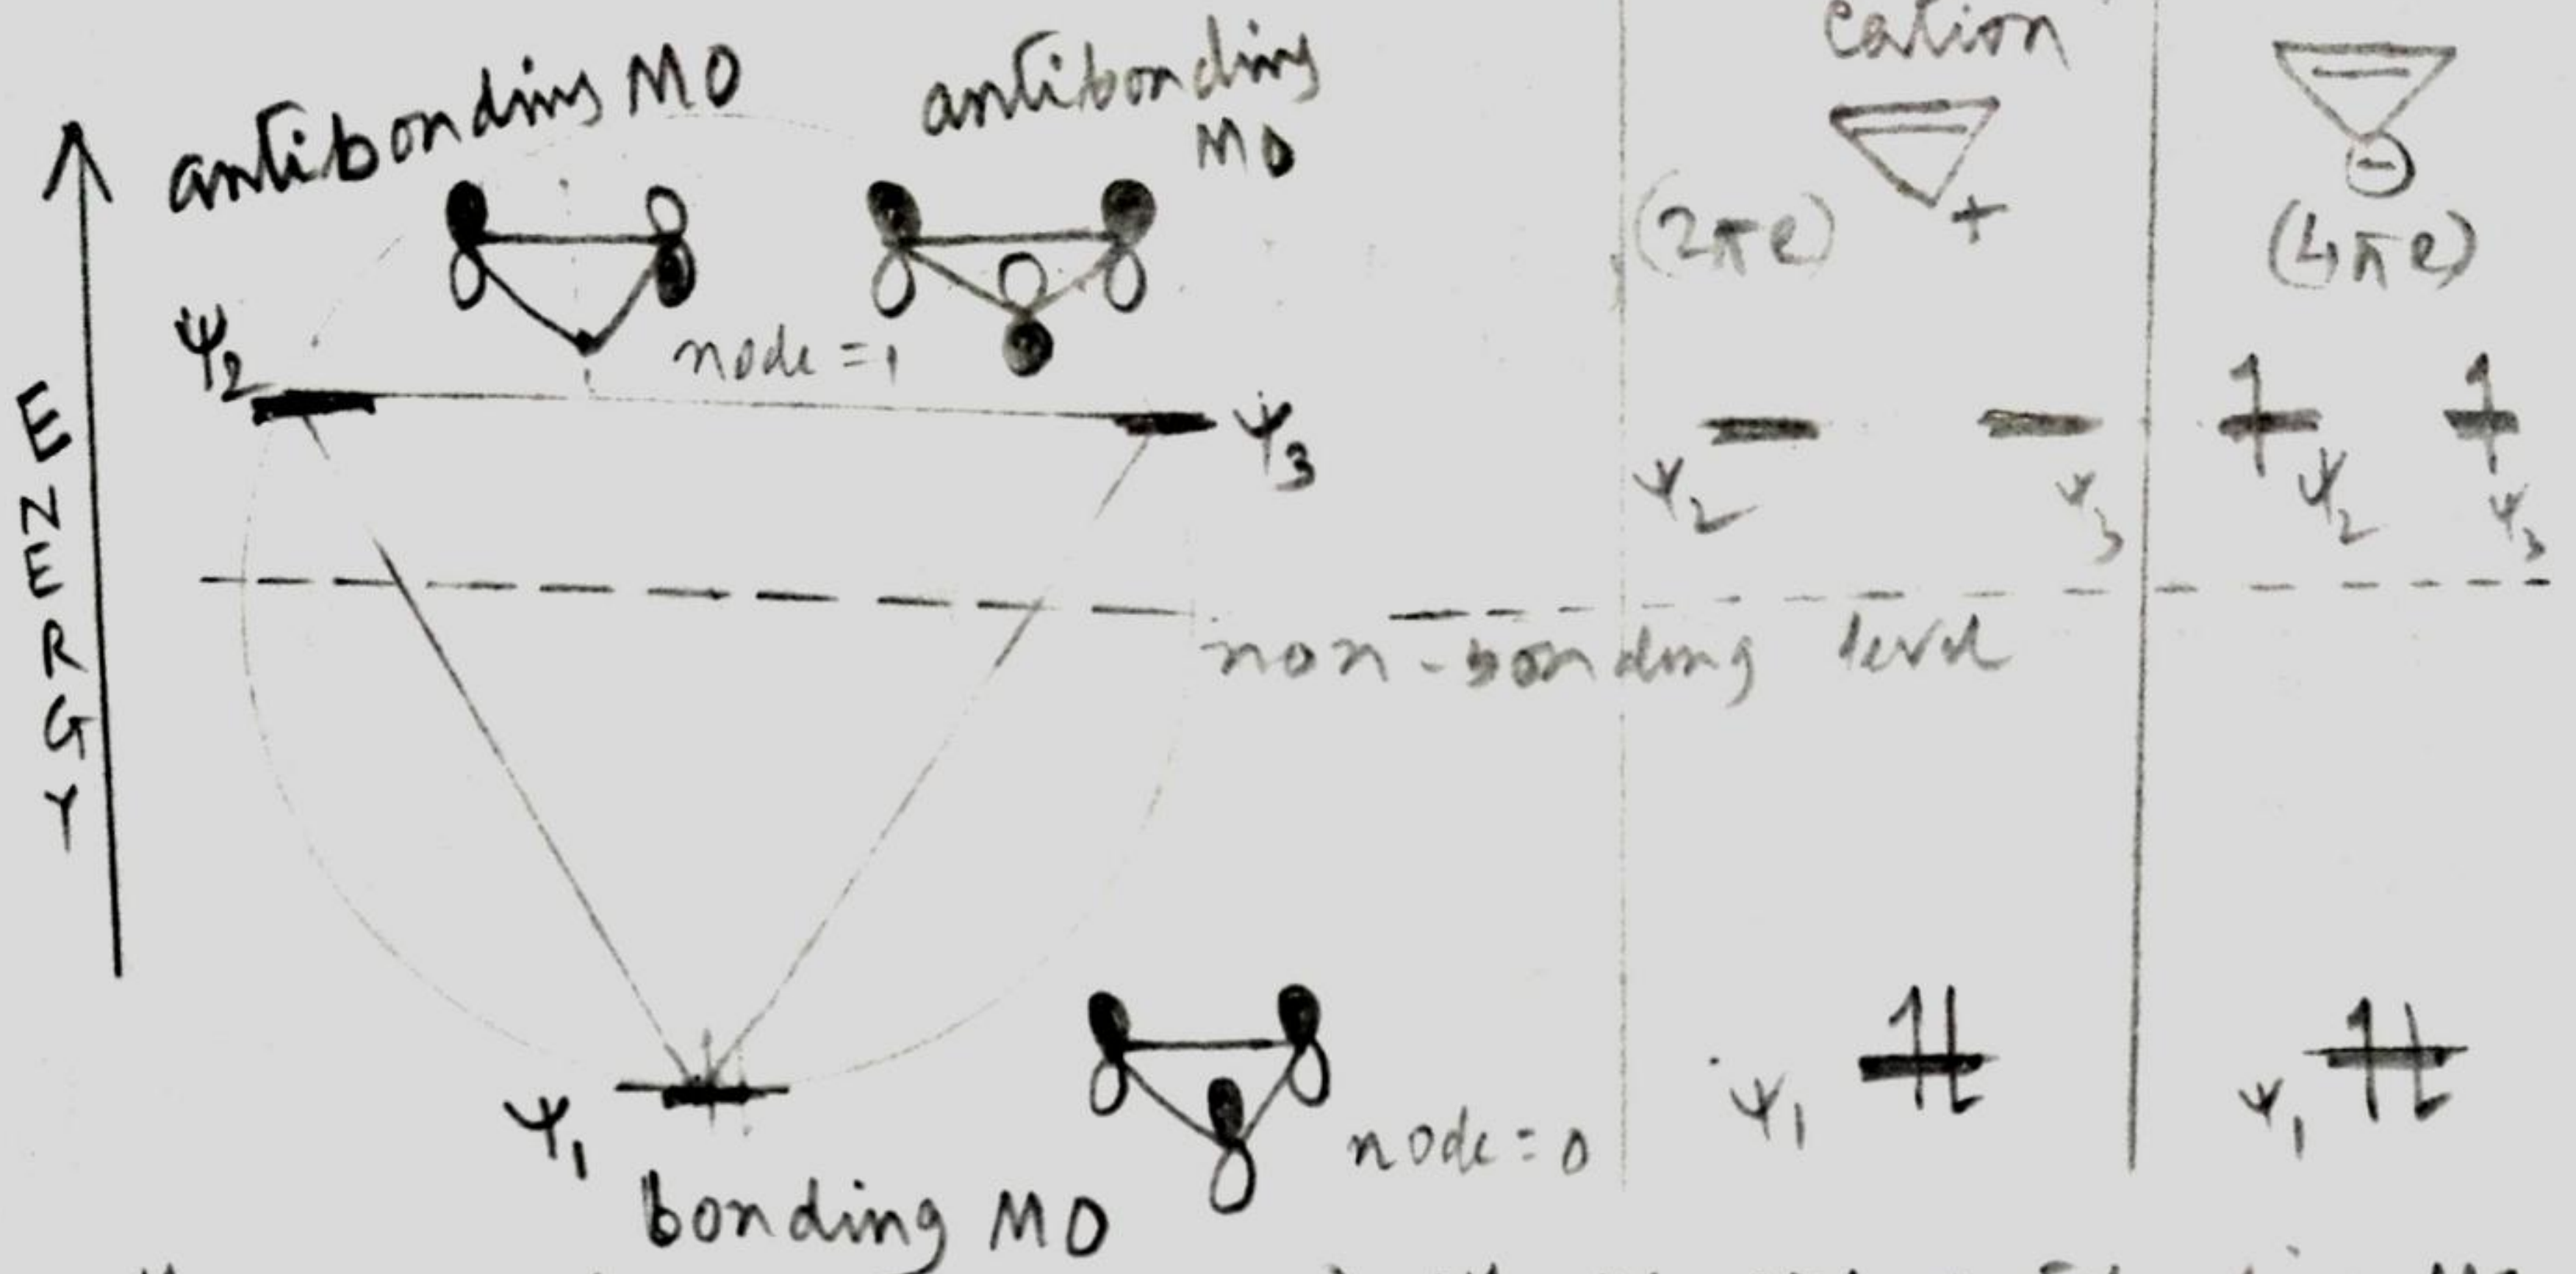 antibonding MO
antibonding
MO
cation
(2πe)
+
⊖
(4πe)
ENERGY
node = 1
ψ2
ψ3
ψ2
ψ3
ψ2
ψ3
non-bonding level
ψ1
node = 0
ψ1
ψ1
bonding MO